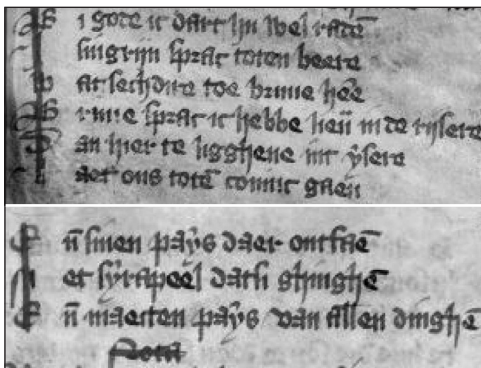 B i gode ic dart hu wel radē
I singrijn sprac toten beere
W at sechdire toe brune hēe
B rune sprac ic hebbe lieū in de rijsere
D an hier te ligghene int ẏsere
L aet ons totē coninc gaen
E n̄ sinen paẏs daer ontfaē
M et fẏrapeel datsi ghinghē
E n̄ maecten paẏs van allen dinghē